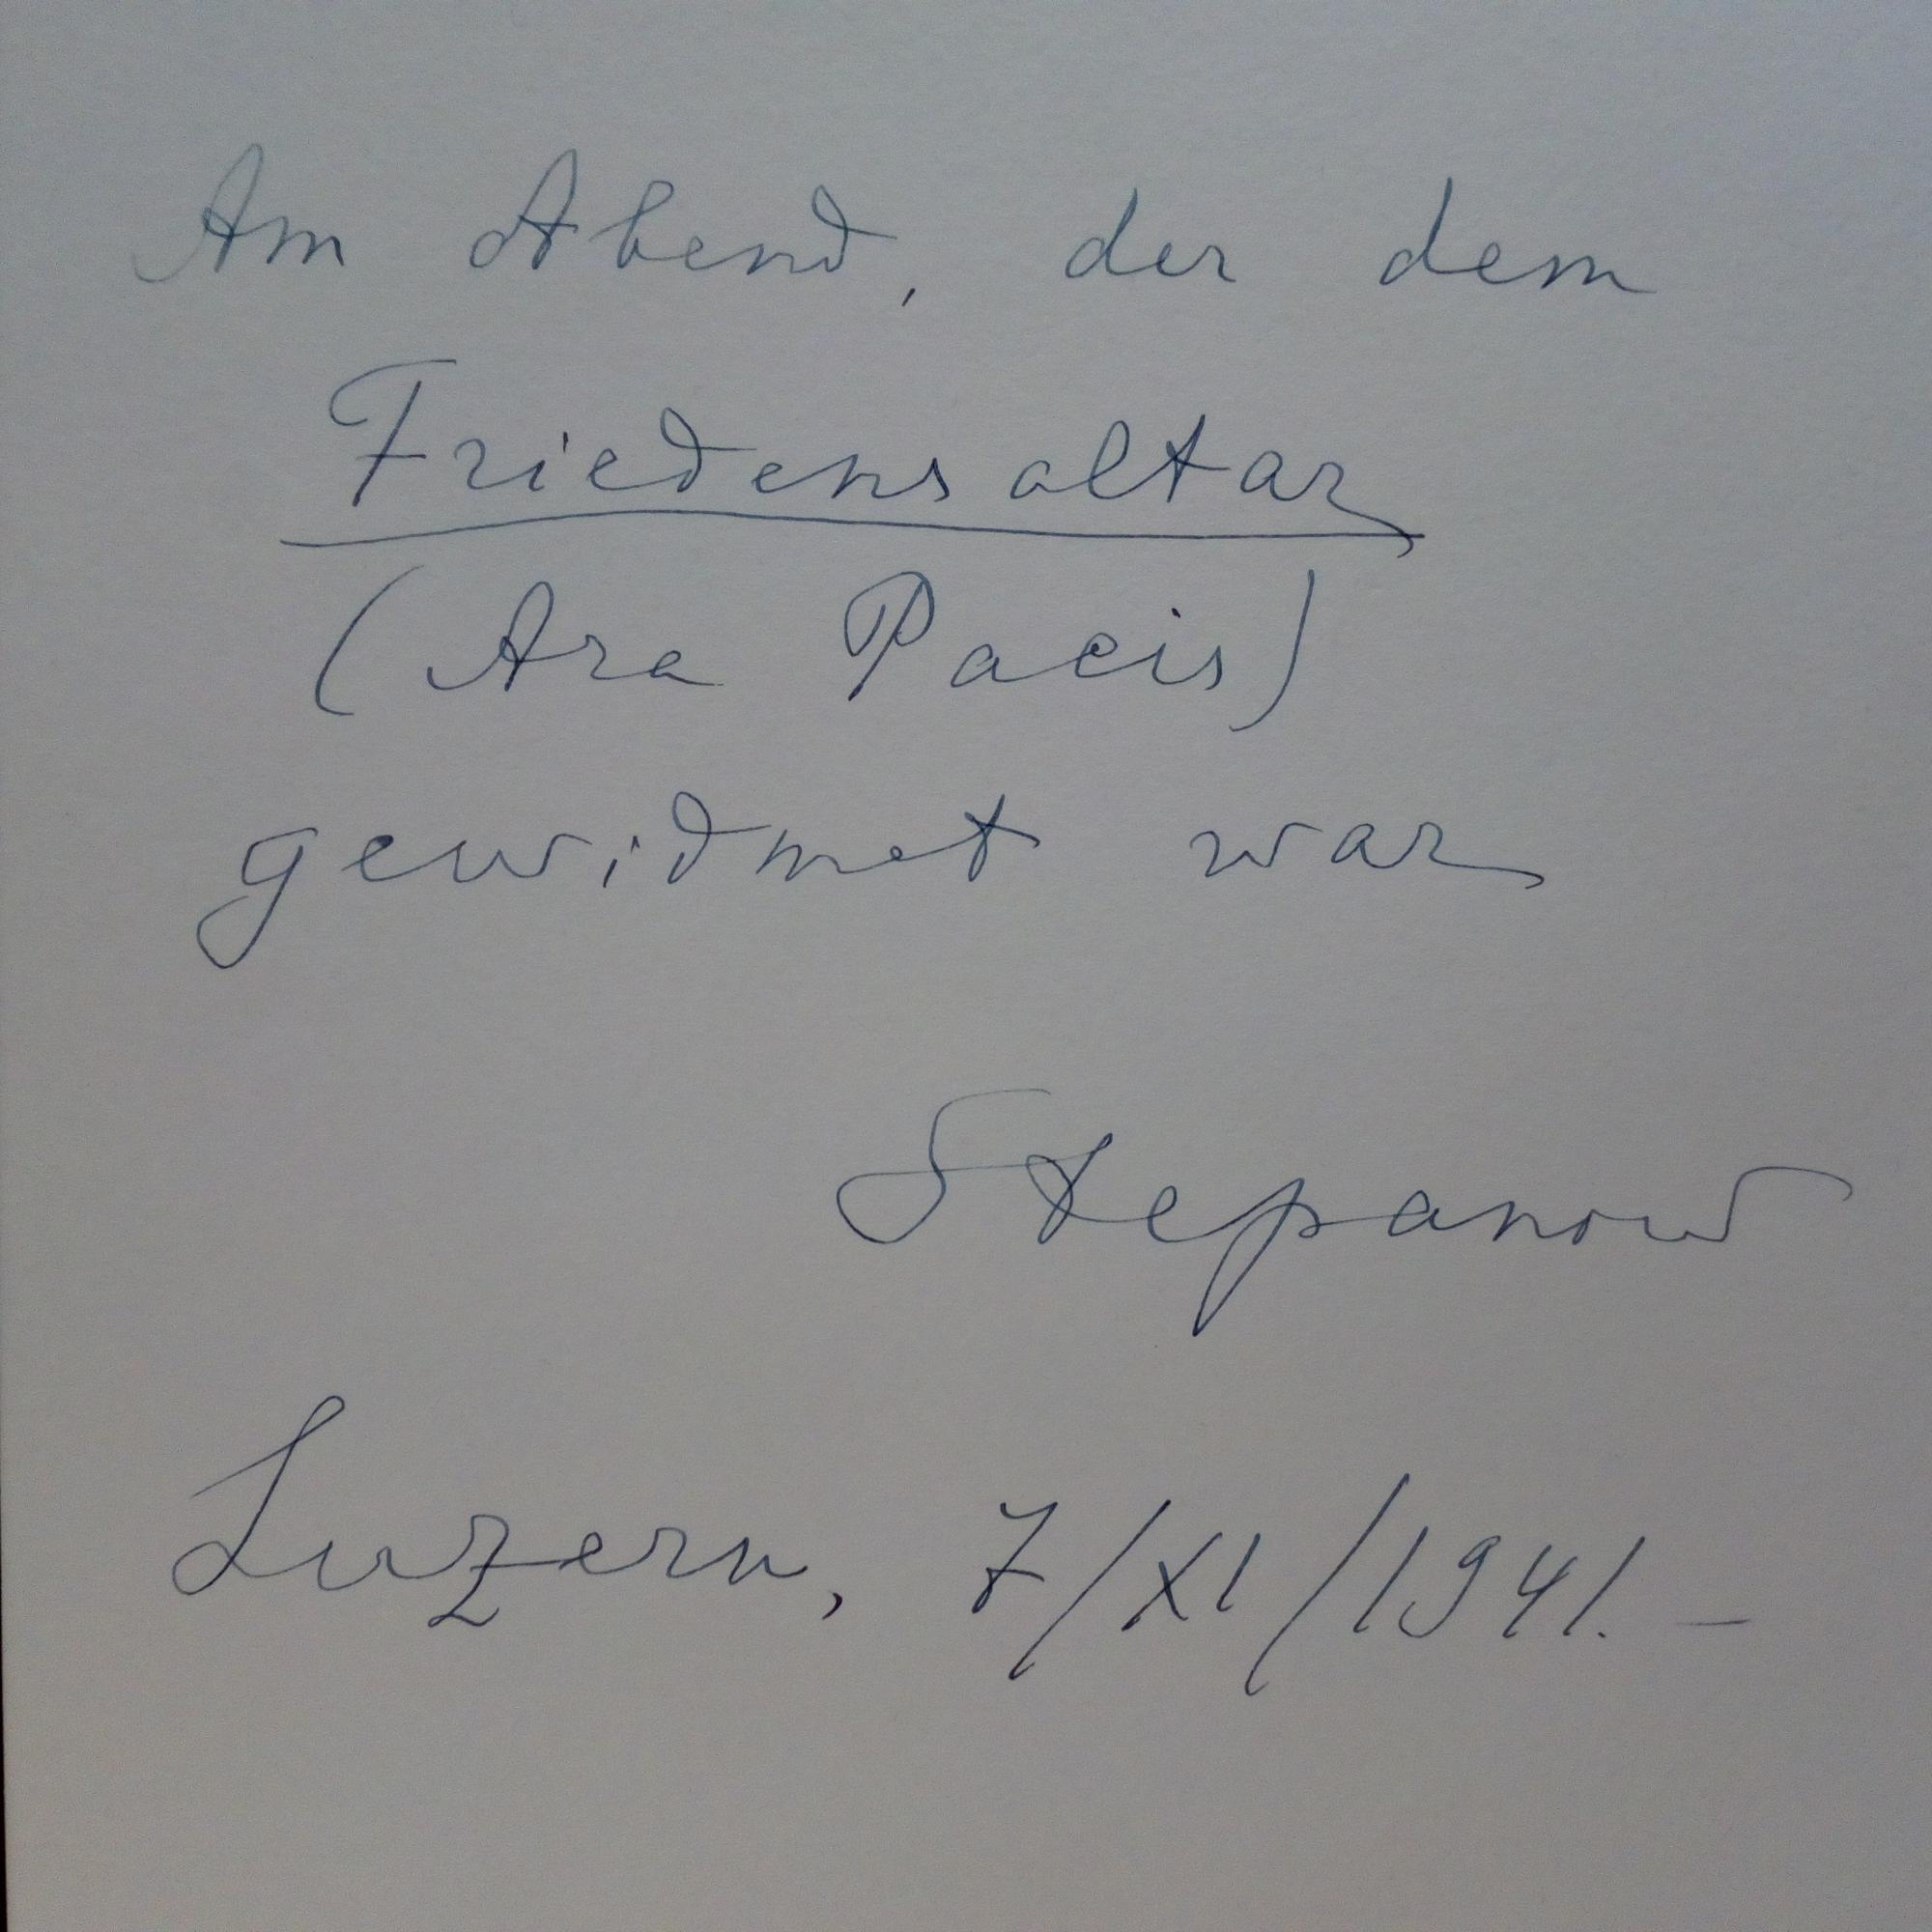 Am Abend, der dem
Friedensaltar
(Ara Pacis)
gewidmet war
Stepanow
Luzern, 7/XI/1941. –